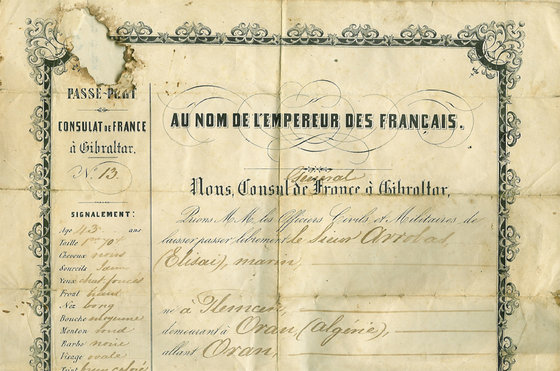 PASSE-PORT
CONSULAT DE FRANCE
à Gibraltar.
N.° 13
SIGNALEMENT:
Age 43 ans
Taille 1m 70c
Cheveux noirs
Sourcils idem
Yeux chat. foncés
Front haut
Nez long
Bouche moyenne
Menton rond
Barbe noire
Visage ovale
Teint brun coloré
AU NOM DE L'EMPEREUR DES FRANÇAIS.
Général
Nous, Consul de France à Gibraltar,
Prions M.M. les Officiers Civils et Militaires de
laisser passer librement le sieur Arrobas
(Elisai), marin,
né à Tlemcen,
demeurant à Oran (algérie),
allant Oran,